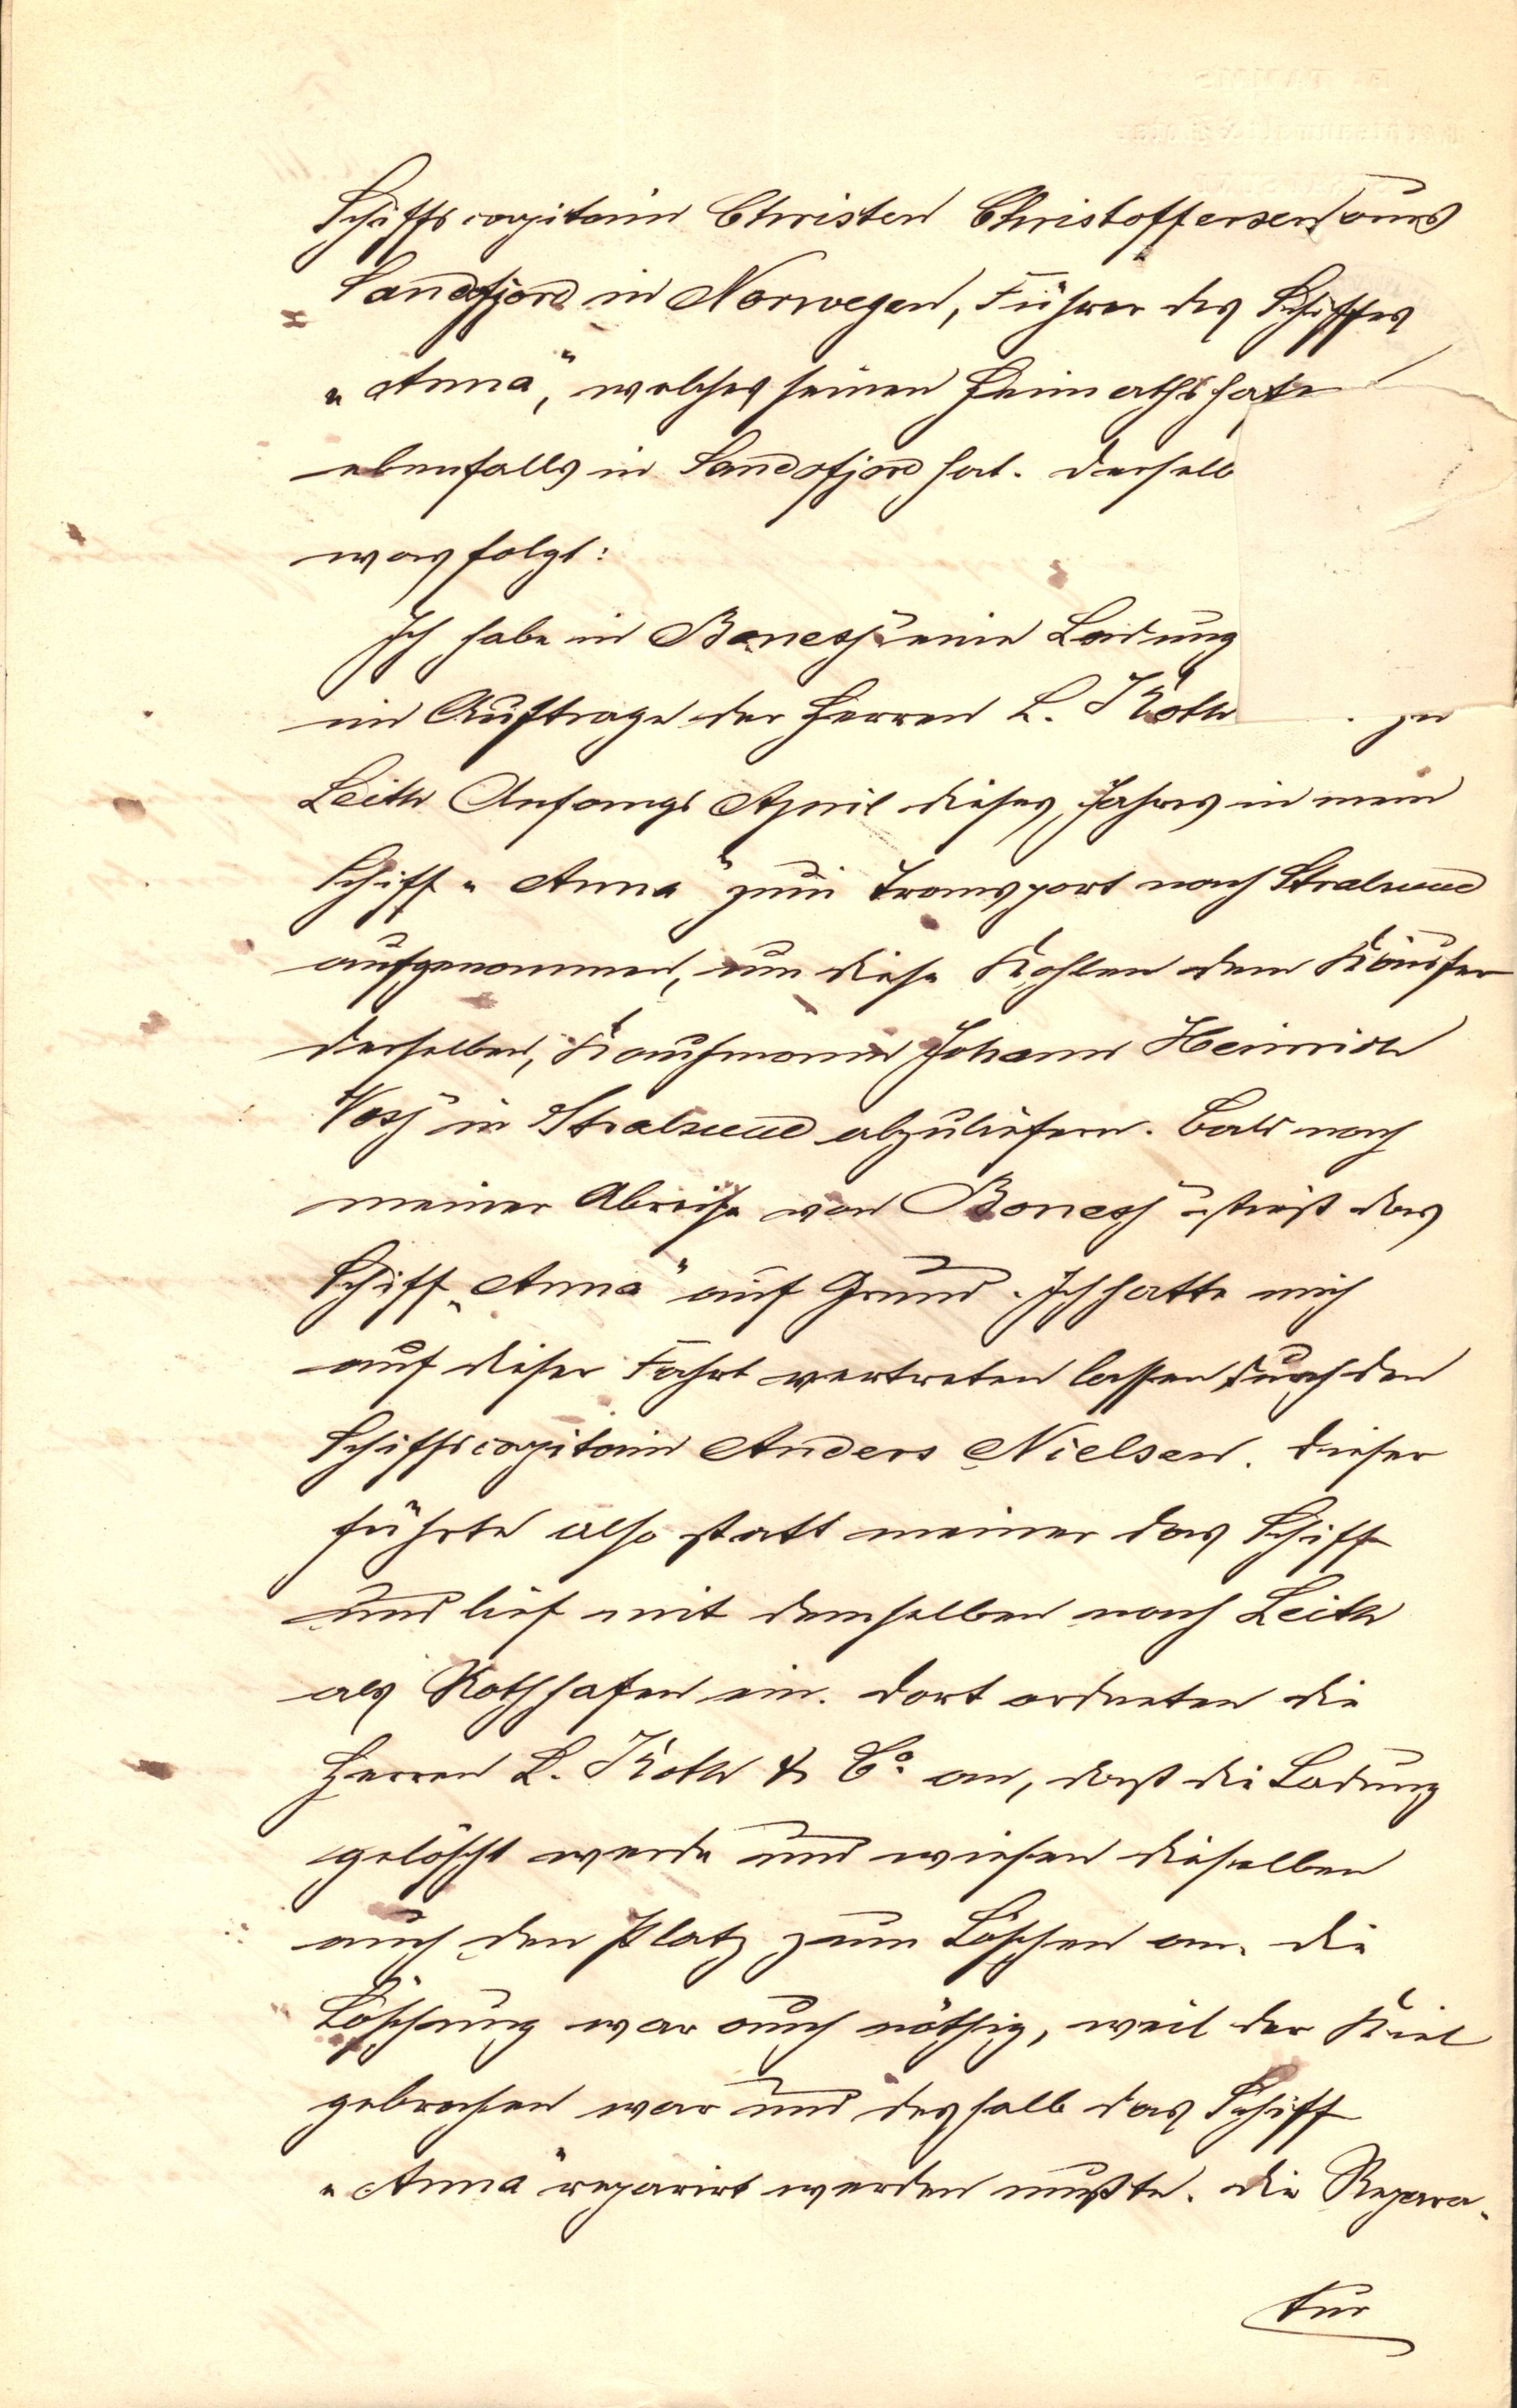 Schiffscapitain Christen Christoffersen aus
Sandefjord in Norwegen, Führer des Schiffes
„Anna“, welches seinen Heimathshafen
ebenfalls in Sandefjord hat. Derselb
was folgt:
Ich habe in Boness eine Ladung
im Auftrage der Herren L. Koth zu
Leith Anfangs April dieses Jahres in mein
Schiff „Anna“ zum Transport nach Stralsund
aufgenommen, um diese Kohlen dem Käufer
derselben, Kaufmann Johann Heinrich
Voss in Stralsund abzuliefern. Bald nach
meiner Abreise von Boness stieß das
Schiff „Anna“ auf Grund. Ich hatte mich
auf dieser Fahrt vertreten lassen durch den
Schiffscapitain Anders Nielsen. Dieser
führte also statt meiner das Schiff
und lief mit demselben nach Leith
als Nothhafen ein. Dort ordneten die
Herren L. Koth & Co. an, daß die Ladung
gelöscht werde und wiesen dieselben
auch den Platz zum Löschen an. Die
Löschung war auch nöthig, weil der Kiel
gebrochen war und deshalb das Schiff
„Anna“ reparirt werden mußte. Die Repara-
tur